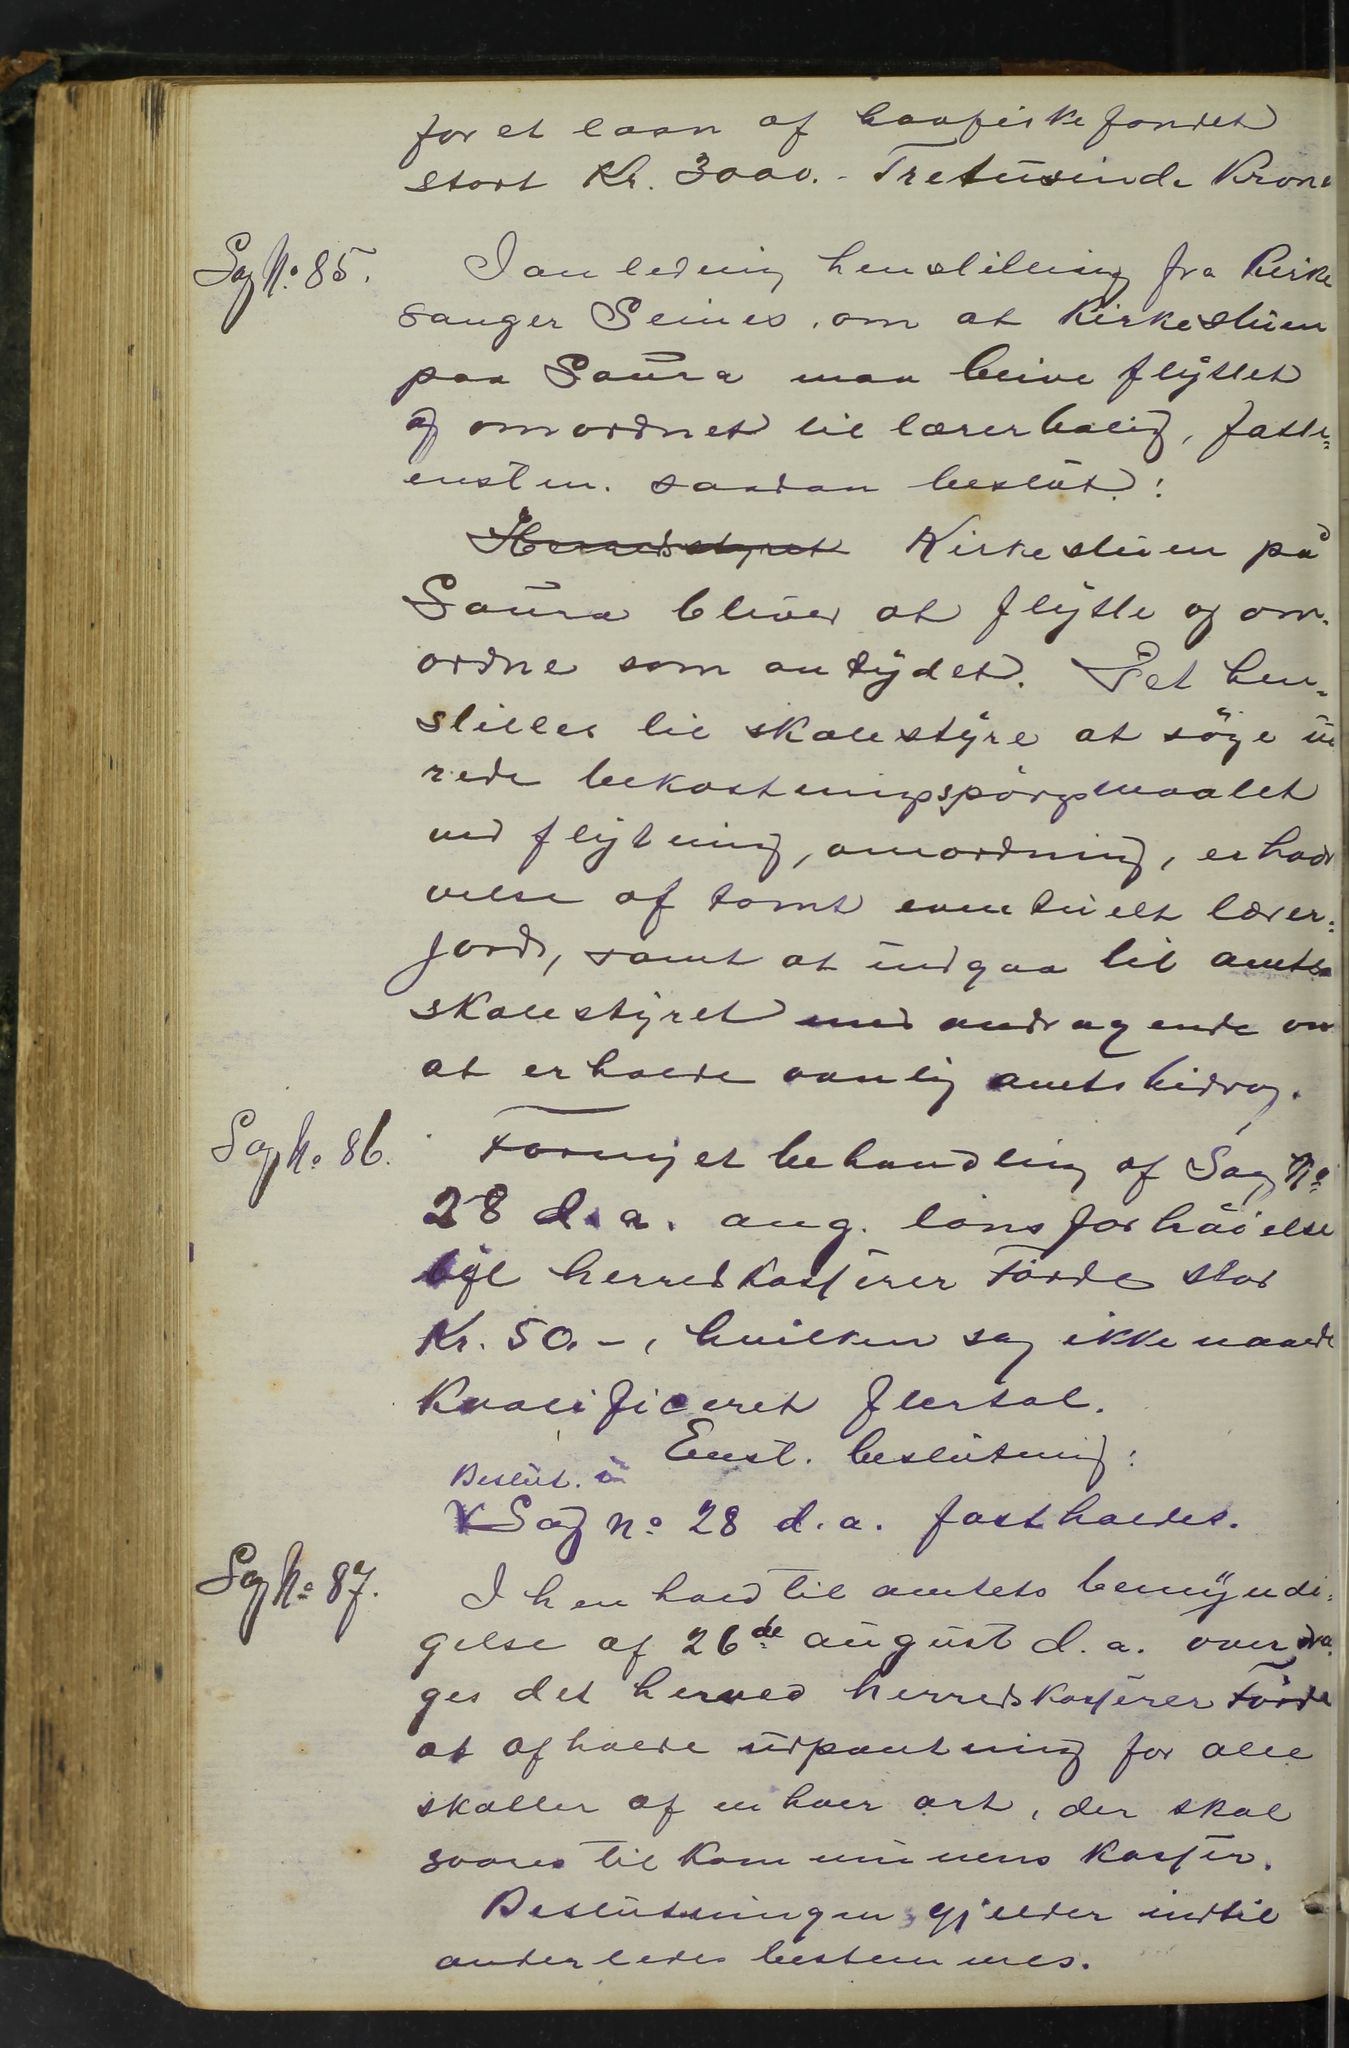 for et laan af havfiskefondet
stort Kr. 3000.- Tretusinde Krone
Sag No. 85. I anledning henstilling fra Kirke
sanger Seines, om at Kirkestuen
paa Saura maa blive flyttet
og omordnet til lærerbolig, fatte=
enstm. saadan beslut:
Herredsstyret Kirkestuen på
Saura bliver at flytte og om-
ordne som antydet. Det hen-
stilles til skolestyre at söge ud
rede bekostningsspörgsmaalet
ved flytning, omordning, erhver
velse af tomt eventuelt lærer=
jord, samt at indgaa til amts
skolestyret med andragende om
at erholde vanlig amtsbidrag.
Sag No. 86. Fornyet behandling af Sag No.
28 d.a. ang. lönsforhöielse
til herredskasserer Förde stor
Kr. 50.-, hvilken sag ikke naaede
kvalificeret flertal.
Enst. beslutning:
Beslut. i
Sag No. 28 d.a. fastholdes.
Sag No. 87. I henhold til amtets bemyndi=
gelse af 26de august d.a. overdra
ges det herved herredskasserer Förde
at afholde udpantning for alle
skatter af enhver art, der skal
svares til kommunens kasser.
Beslutningen gjelder indtil
anderledes bestemmes.